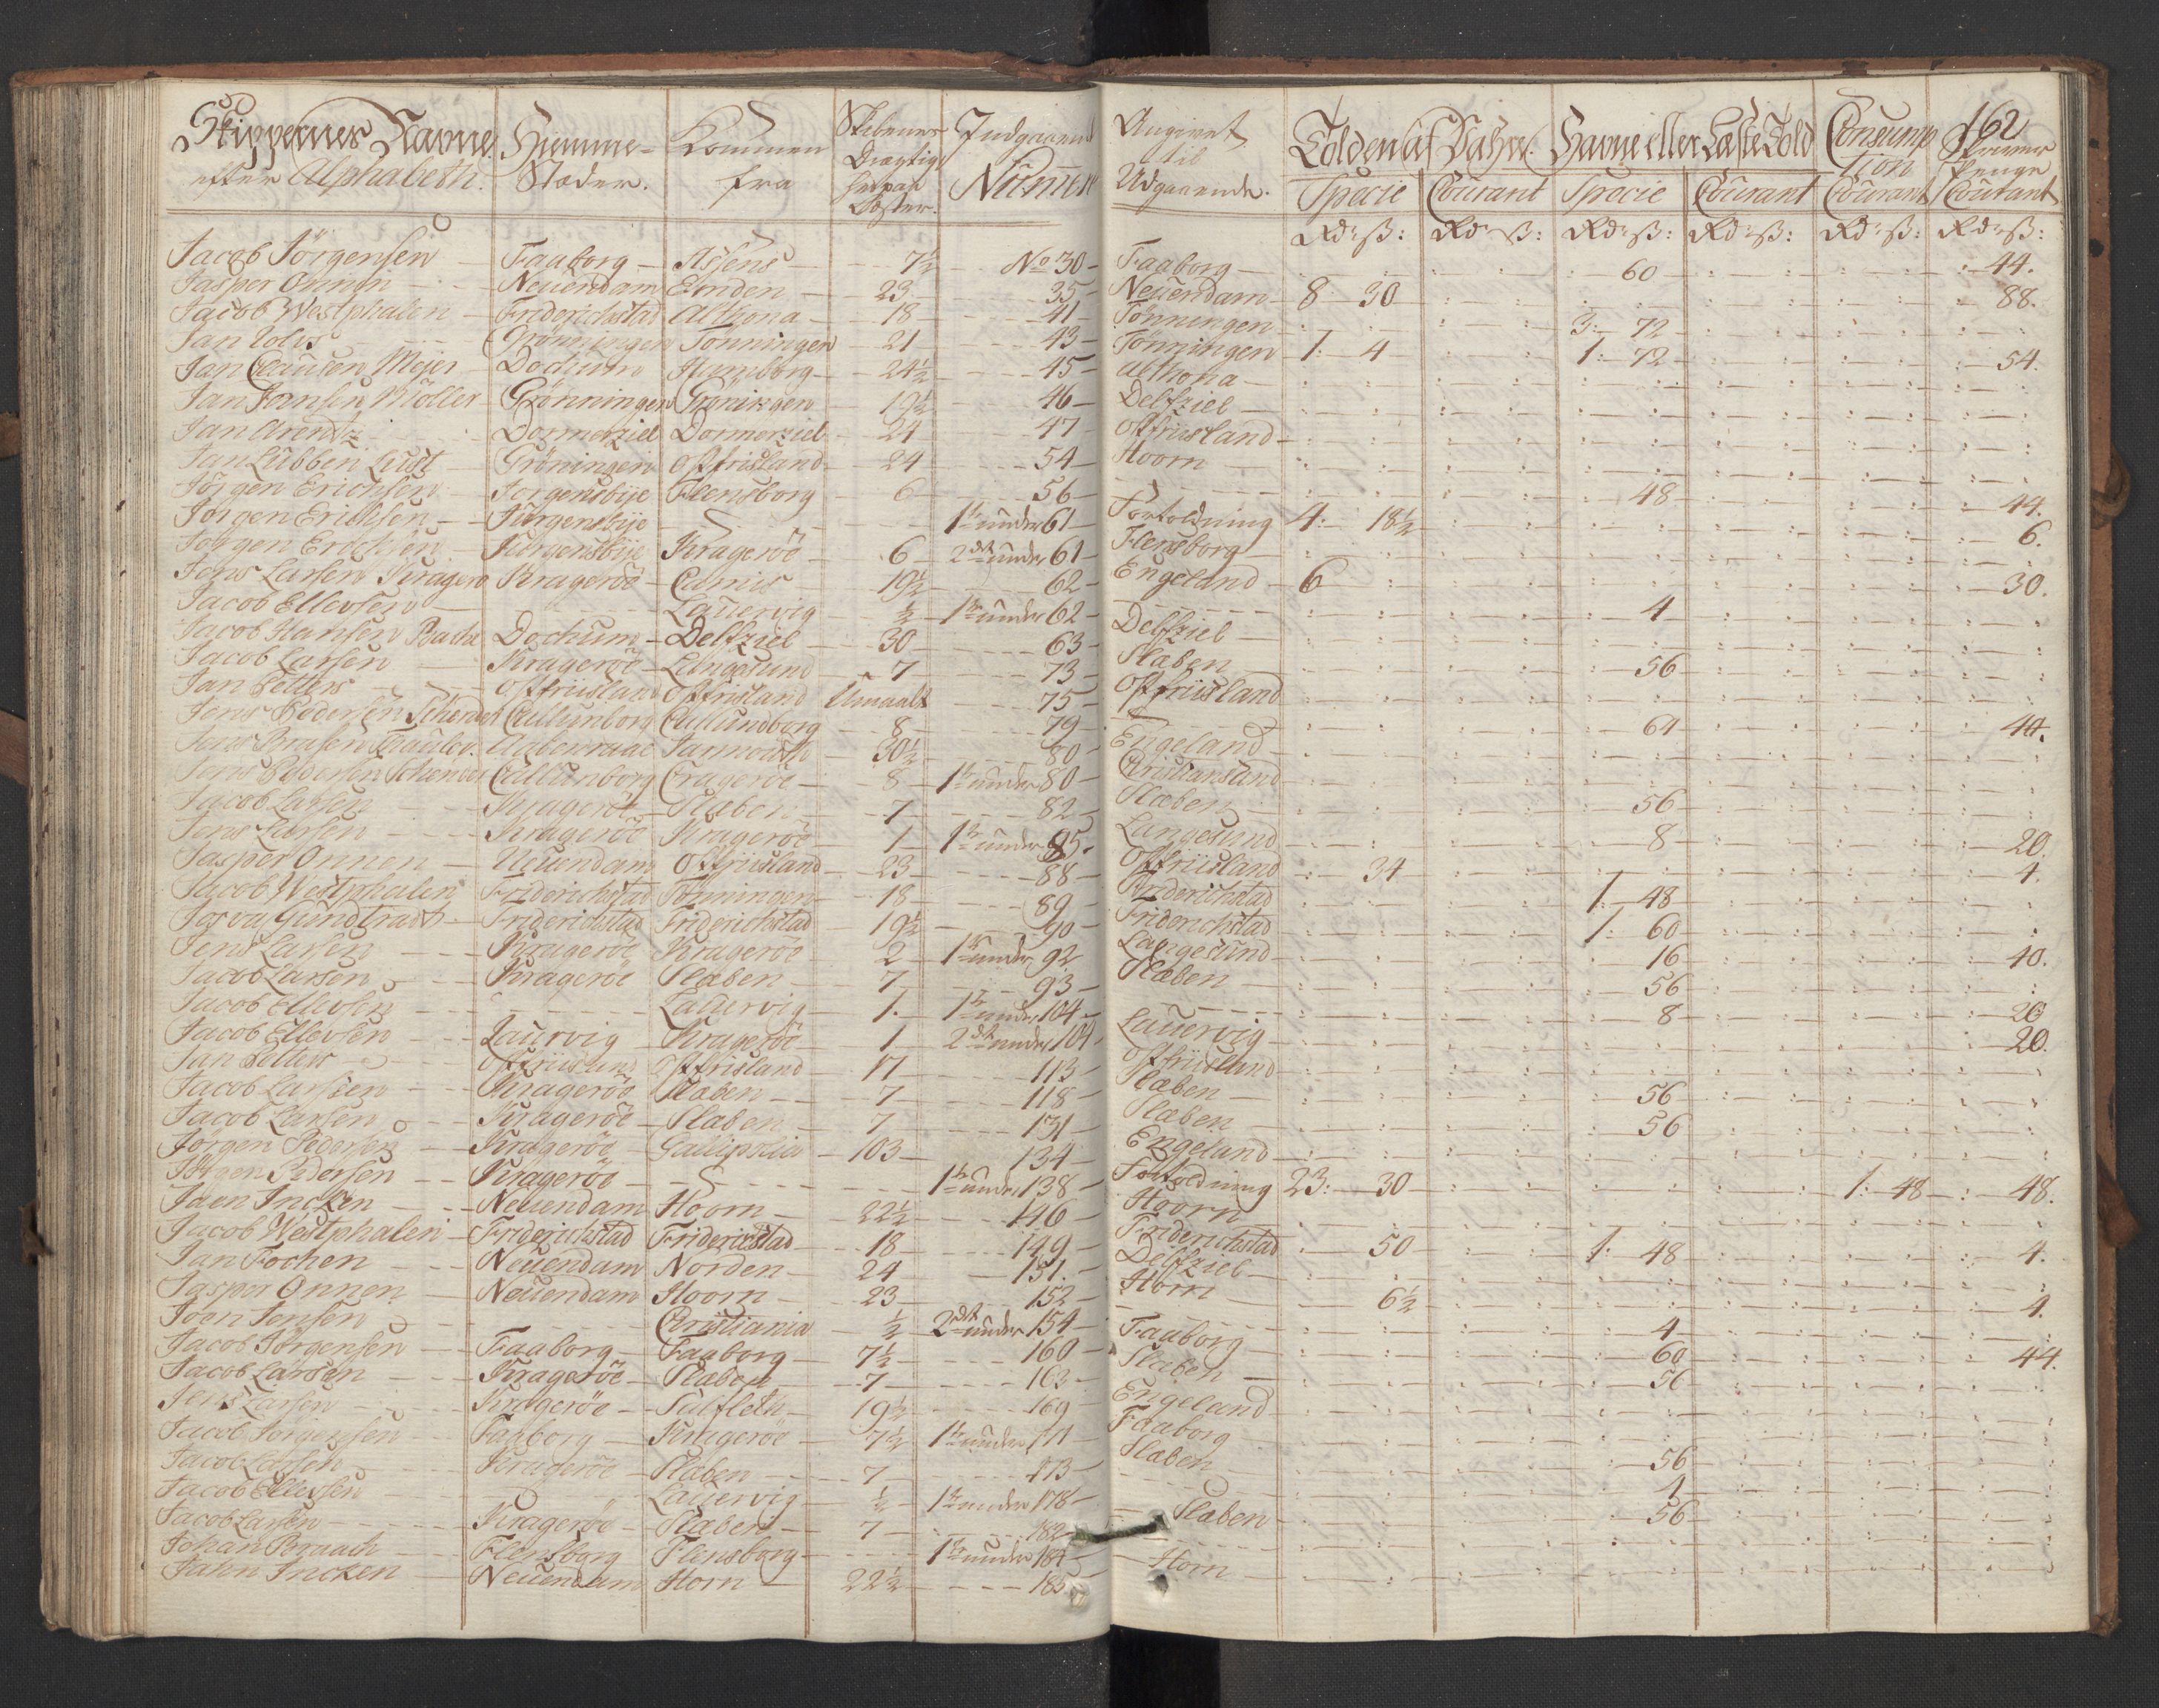 Skippernes Navne efter Alphabeth. | Hiemme-Stæder. | Kommen fra | Skibenes Drægtighed Læster. | Indgaaende Numer | Angivet til Udgaaende. | Tolden af Vahre. | Havne eller Læste Told | Consumption | 162
Specie | Courant | Specie | Courant | Courant | Penge Courant
Rdr ß: | Rdr ß: | Rdr ß: | Rdr ß: | Rdr ß: | Rdr ß:
Jacob Jörgensen — Faaborg — Assens — 7½ — No 30 — Faaborg — 60 — 44.
Jasper Onnen — Neuendam Emden — 23 — 35 — Neuendam — 8: 30 — 88.
Jacob Westphalen — Friderichstad Althona — 18 — 41 — Tonningen — 3: 72
Jan — Grönningen Tonningen — 21 — 43 — Tonningen — 1: 4 — 1: 72 — 54.
Jan Clausen Mejer — Dockum Hamborg — 24½ — 45 — Althona
Jan Jansen Möller — Grönningen Gröningen — 19½ — 46 — Delfziel
Jan Arendtz — Dormerziel Dormerziel — 24 — 47 — Ostfriisland
Jan Lubben Lust — Gröningen Ostfrisland — 24 — 54 — Hoorn
Jörgen Erichsen — Jorgensbÿe Flensborg — 6 — 56 — 48 — 44.
Jörgen Erichsen — Jürgensbije — 1te under 61 — Fortoldning 4: 18½ — 6.
Jörgen Erichsen — Jürgensbije Krageröe — 6 — 2det under 61 — Flensborg
Jens Larsen Kragerö Krageröe — 19½ — 62 — Engeland — 6 — 30.
Jacob Ellevsen — Lauervig — ½ — 1te under 62 — 4
Jacob Hansen — Dochum — Delfziel — 30 — 63 — Delfziel
Jacob Larsen — Krageröe — Langesund — 7 — 73 — Slaben — 56
Jan Petters — Ostfriisland Ostfrisland Umaalt — 75 — Ostfriisland
Jens Pedersen Callunborg Callundborg — 8 — 79 — 64 — 44.
Jens — Aabenraae Jarmouth — 30½ — 80 — Engeland
Jens Pedersen Callunborg Cragerøe — 8 — 1te under 80 — Cristiansund
Jacob Larsen — Kragerøe — Slaben — 7 — 82 — Slaben — 56
Jens Larsen — Kragerøe Kragerøe — 1 — 1te under 85. — Langesund — 8 — 20.
Jasper Onnen — Neuendam Ostfriisland — 23 — 88 — Ostfriisland — 34 — 4.
Jacob Westphalen Friderichstad Tonningen — 18 — 89 — Friderichstad — 1: 48
Josva Gundtradt — Friderichstad Friderichstad — 19½ — 90 — Friderichstad — 1: 60
Jens Larsen — Kragerøe Kragerøe — 2 — 1te under 92 — Langesund — 16 — 40.
Jacob Larsen — Kragerøe Slaben — 7 — 93 — Slæben — 56
Jacob Ellevsen — Lauervig — 1. — 1te under 104 — 8 — 20
Jacob Ellevsen — Laurvig — Kragerøe — 1 — 2det under 104 — Lauervig — 20.
Jan Petters — Ostfriisland Ostfrisland — 17 — 113 — Ostfriisland
Jacob Larssen — Kragerøe Slaben — 7 — 118 — Slaben — 56
Jacob Larsen — Kragerøe — Slaben — 7 — 131 — Slæben — 56
Jørgen Pedersen — Kragerøe — 103 — 134 — Engeland
Jörgen Pedersen — Kragerøe — 1te under 138 — Fortoldning 23: 30 — 1: 48 — 48.
Jaen Incken — Neuendam Hoorn — 22½ — 146 — Hoorn
Jacob Westphalen — Friderichstad Friderichstad — 18 — 149 — Friderichstad — 50 — 1: 48 — 4.
Jan Fochen — Neuendam Norden — 24 — 151. — Delfziel
Jasper Onnen — Neuendam Hoorn — 23 — 152 — Horn — 6½ — 4.
Joen Jensen — Christiania — ½ — 2det under 154 — 4
Jacob Jörgensen — Faaborg — Faaborg — 7½ — 160 — Faaborg — 60 — 44.
Jacob Larsen — Kragerøe — Slaben — 7 — 163 — Slaben — 56
Jens Larsen — Kragerøe — 19½ — 169 — Engeland
Jacob Jörgensen — Faaborg — Kragerøe — 7½ — 1te under 171 — Faaborg
Jacob Larsen — Kragerøe — Slaben — 7 — 173 — Slaben — 56
Jacob Ellevsen — Lauervig — ½ — 1te under 178 — 4
Jacob Larsen — Kragerøe — Slaben — 7 — 182 — Slaben — 56
Johan Braach — Flensborg Flensborg — 1te under 184
Jahn Incken — Neuendam Horn — 22½ — 185 — Horn